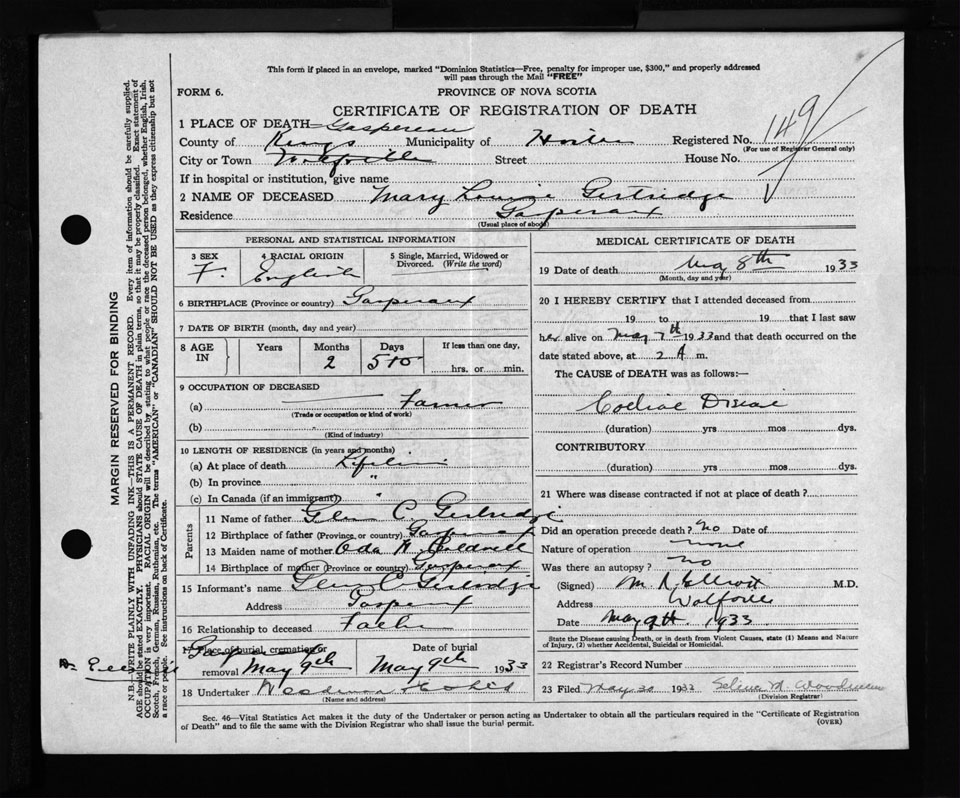 This form if placed in an envelope, marked "Dominion Statistics—Free, penalty for improper use, $300," and properly addressed
will pass through the Mail "FREE"
FORM 6.
PROVINCE OF NOVA SCOTIA
CERTIFICATE OF REGISTRATION OF DEATH
1 PLACE OF DEATH— Gaspereau
County of Kings Municipality of Registered No. 149
(For use of Registrar General only)
City or Town Wolfville Street House No.
If in hospital or institution, give name
2 NAME OF DECEASED Mary Louise Gertridge
Residence Gasperaux
(Usual place of abode)
PERSONAL AND STATISTICAL INFORMATION
3 SEX 4 RACIAL ORIGIN 5 Single, Married, Widowed or
Divorced. (Write the word)
F. English
6 BIRTHPLACE (Province or country) Gasperaux
7 DATE OF BIRTH (month, day and year)
8 AGE IN Years Months Days If less than one day,
2 hrs. or min.
9 OCCUPATION OF DECEASED
(a) Farmer
(Trade or occupation or kind of work)
(b)
(Kind of industry)
10 LENGTH OF RESIDENCE (in years and months)
(a) At place of death Lifetime
(b) In province "
(c) In Canada (if an immigrant) "
Parents
11 Name of father Glen C Gertridge
12 Birthplace of father (Province or country) Gasperaux
13 Maiden name of mother Oda A
14 Birthplace of mother (Province or country) Gasperaux
15 Informant's name Glen C Gertridge
Address Gasperaux
16 Relationship to deceased Father
17 Place of burial, cremation or Date of burial
removal May 9th May 9th 1933
18 Undertaker
(Name and address)
MEDICAL CERTIFICATE OF DEATH
19 Date of death May 8th 1933
(Month, day and year)
20 I HEREBY CERTIFY that I attended deceased from
19 to 19 that I last saw
her alive on May 7th 1933 and that death occurred on the
date stated above, at 2 A m.
The CAUSE of DEATH was as follows:—
Coeliac Disease
(duration) yrs mos dys.
CONTRIBUTORY
(duration) yrs mos dys.
21 Where was disease contracted if not at place of death?
Did an operation precede death? No Date of
Nature of operation none
Was there an autopsy? No
(Signed) M R Elliott M.D.
Address Wolfville
Date May 9th 1933
State the Disease causing Death, or in death from Violent Causes, state (1) Means and Nature
of Injury, (2) whether Accidental, Suicidal or Homicidal.
22 Registrar's Record Number
23 Filed May 30 1933 Selina M. Woodman
(Division Registrar)
Sec. 46—Vital Statistics Act makes it the duty of the Undertaker or person acting as Undertaker to obtain all the particulars required in the "Certificate of Registration
of Death" and to file the same with the Division Registrar who shall issue the burial permit.
(OVER)
MARGIN RESERVED FOR BINDING
N.B.—WRITE PLAINLY WITH UNFADING INK—THIS IS A PERMANENT RECORD. Every item of information should be carefully supplied.
AGE should be stated EXACTLY. PHYSICIANS should STATE CAUSE OF DEATH in plain terms, so that it may be properly classified. Exact statement of
OCCUPATION is very important. RACIAL ORIGIN will be described by stating to what people or race the deceased person belonged, whether English, Irish,
Scotch, French, German, Russian, Ruthenian, etc. The terms "AMERICAN" or "CANADIAN" SHOULD NOT BE USED as they express citizenship but not
a race or people. See instructions on back of Certificate.